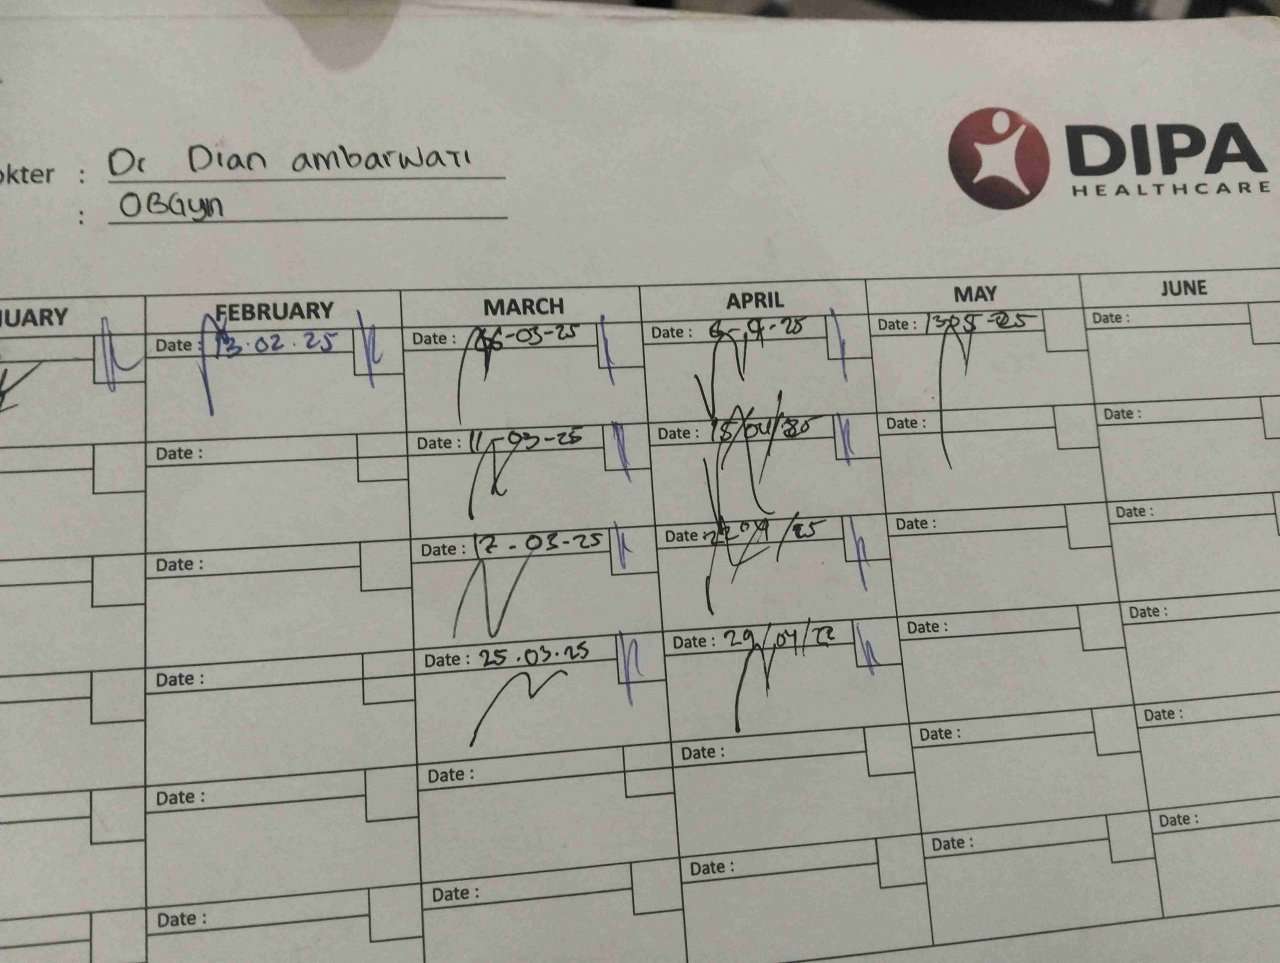 DIPA
HEALTHCARE
okter : Dr Dian ambarwati
: OBGyn
UARY FEBRUARY MARCH APRIL MAY JUNE
Date : 13.02.25 Date : 06-03-25 Date : 6-4-25 Date : 13-05-25 Date :
Date : Date : 11-03-25 Date : 15/04/25 Date : Date :
Date : Date : 17-03-25 Date : 22/04/25 Date : Date :
Date : Date : 25.03.25 Date : 29/04/22 Date : Date :
Date : Date : Date : Date : Date :
Date : Date : Date : Date : Date :